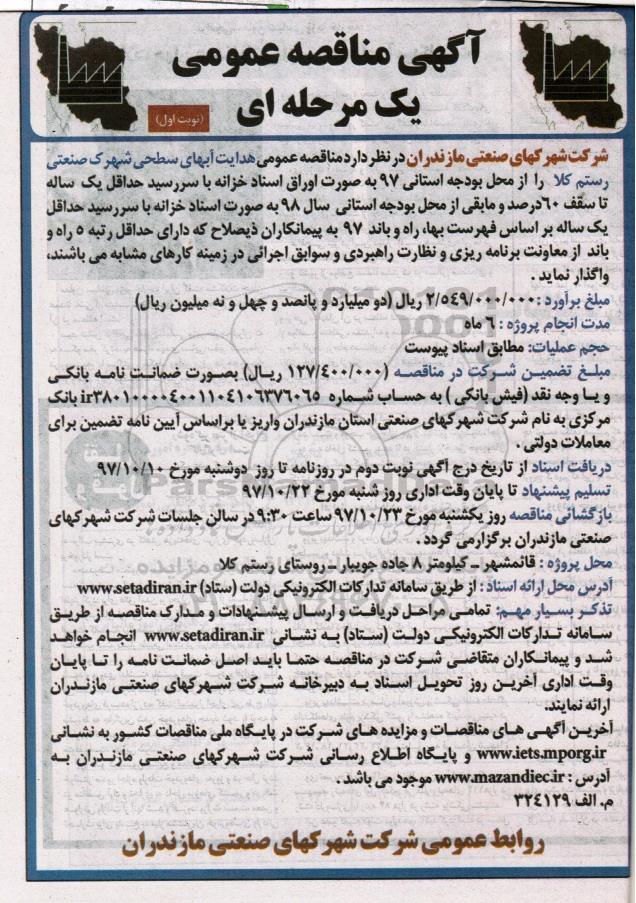 آگهی مناقصه عمومی
یک مرحله ای
(نوبت اول)
شرکت شهرکهای صنعتی مازندران در نظر دارد مناقصه عمومی هدایت آبهای سطحی شهرک صنعتی
رستم کلا را از محل بودجه استانی ۹۷ به صورت اوراق اسناد خزانه با سررسید حداقل یک ساله
تا سقف ۶۰درصد و مابقی از محل بودجه استانی سال ۹۸ به صورت اسناد خزانه با سررسید حداقل
یک ساله بر اساس فهرست بها، راه و باند ۹۷ به پیمانکاران ذیصلاح که دارای حداقل رتبه ۵ راه و
باند از معاونت برنامه ریزی و نظارت راهبردی و سوابق اجرائی در زمینه کارهای مشابه می باشند،
واگذار نماید .
مبلغ برآورد : ۲/۵۴۹/۰۰۰/۰۰۰ ریال (دو میلیارد و پانصد و چهل و نه میلیون ریال)
مدت انجام پروژه : ۶ ماه
حجم عملیات: مطابق اسناد پیوست
مبلغ تضمین شرکت در مناقصه (۱۲۷/۴۰۰/۰۰۰ ریال) بصورت ضمانت نامه بانکی
و یا وجه نقد (فیش بانکی ) به حساب شماره ir۳۸۰۱۰۰۰۰۴۰۰۱۱۰۴۱۰۶۳۷۶۰۶۵ بانک
مرکزی به نام شرکت شهرکهای صنعتی استان مازندران واریز یا براساس آیین نامه تضمین برای
معاملات دولتی .
دریافت اسناد از تاریخ درج آگهی نوبت دوم در روزنامه تا روز دوشنبه مورخ ۹۷/۱۰/۱۰
تسلیم پیشنهاد تا پایان وقت اداری روز شنبه مورخ ۹۷/۱۰/۲۲
بازگشائی مناقصه روز یکشنبه مورخ ۹۷/۱۰/۲۳ ساعت ۹:۳۰ در سالن جلسات شرکت شهرکهای
صنعتی مازندران برگزار می گردد .
محل پروژه : قائمشهر ـ کیلومتر ۸ جاده جویبار ـ روستای رستم کلا
آدرس محل ارائه اسناد : از طریق سامانه تدارکات الکترونیکی دولت (ستاد) www.setadiran.ir
تذکر بسیار مهم: تمامی مراحل دریافت و ارسال پیشنهادات و مدارک مناقصه از طریق
سامانه تدارکات الکترونیکی دولت (ستاد) به نشانی www.setadiran.ir انجام خواهد
شد و پیمانکاران متقاضی شرکت در مناقصه حتما باید اصل ضمانت نامه را تا پایان
وقت اداری آخرین روز تحویل اسناد به دبیرخانه شرکت شهرکهای صنعتی مازندران
ارائه نمایند.
آخرین آگهی های مناقصات و مزایده های شرکت در پایگاه ملی مناقصات کشور به نشانی
www.iets.mporg.ir و پایگاه اطلاع رسانی شرکت شهرکهای صنعتی مازندران به
آدرس : www.mazandiec.ir موجود می باشد .
م. الف ۳۲۴۱۲۹
روابط عمومی شرکت شهرکهای صنعتی مازندران